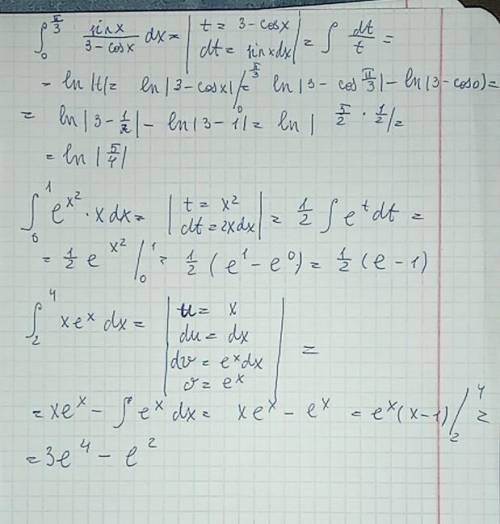 ∫₀^{π/3} sinx/(3-cosx) dx = | t = 3-cosx; dt = sinxdx | = ∫ dt/t =
= ln|t| = ln|3-cosx| /₀^{π/3} = ln|3 - cos π/3| - ln(3-cos0) =
= ln|3 - 1/2| - ln|3-1| = ln| 5/2 · 1/2 | =
= ln|5/4|
∫₀¹ e^{x²} · x dx = | t = x²; dt = 2xdx | = 1/2 ∫ e^t dt =
= 1/2 e^{x²} /₀¹ = 1/2 (e¹ - e⁰) = 1/2 (e - 1)
∫₂⁴ xeˣ dx = | u = x; du = dx; dv = eˣdx; v = eˣ | =
= xeˣ - ∫ eˣ dx = xeˣ - eˣ = eˣ(x-1) /₂⁴ =
= 3e⁴ - e²